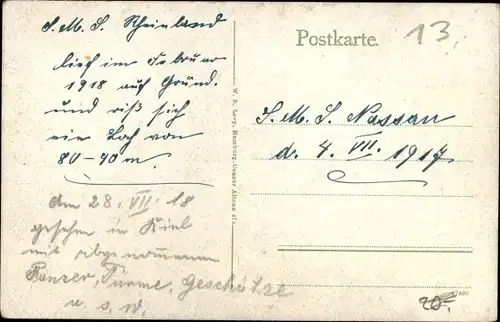 S.M.S. Rheinland
lief im Februar
1918 auf Grund.
und riß sich
ein Loch von
80-90 m.
den 28. VII. 18
gesehen in Kiel
mit abgenommenen
Panzer, Türme, Geschütze
u. s. w.
Postkarte.
13.
S.M.S. Nassau
d. 4. VII. 1917
20.-